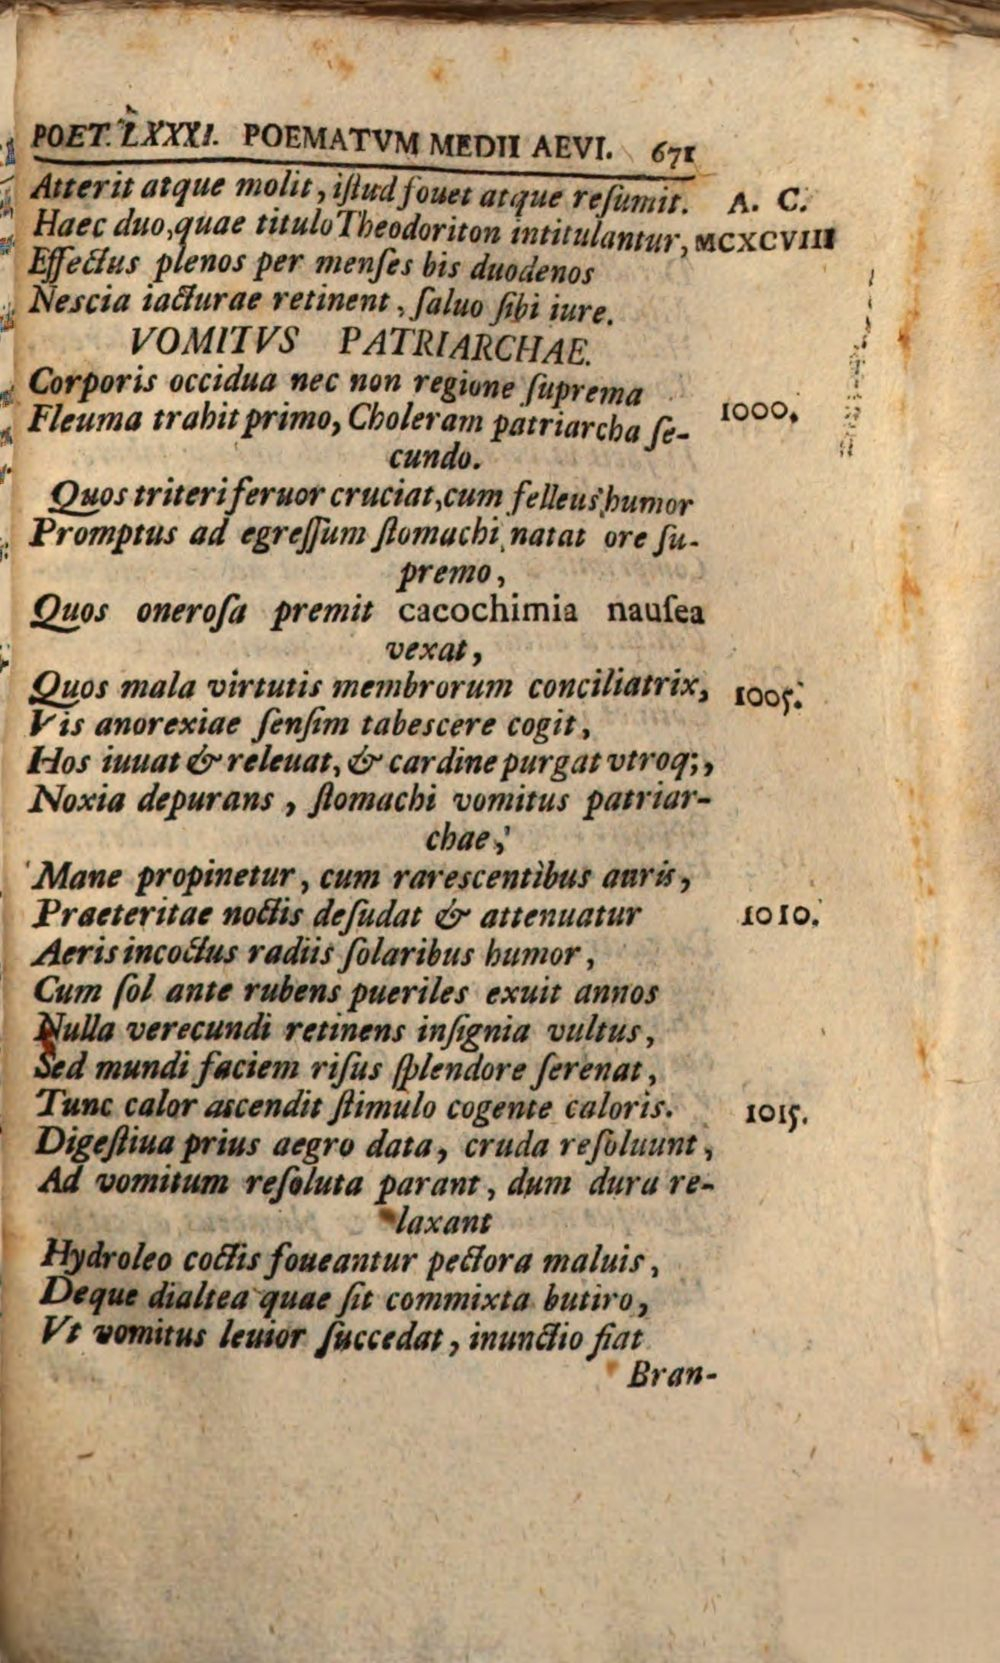 POET. LXXXI. POEMATVM MEDII AEVI. 671
Atterit atque molit, iſtud fouet atque reſumit. A. C.
Haec duo, quae titulo Theodoriton intitulantur, MCXCVIII
Effectus plenos per menſes bis duodenos
Nescia iacturae retinent, ſaluo ſibi iure.
VOMITVS PATRIARCHAE.
Corporis occidua nec non regione ſuprema
Fleuma trahit primo, Choleram patriarcha ſe- 1000.
cundo.
Quos triteri feruor cruciat, cum felleus humor
Promptus ad egreſſum ſtomachi natat ore ſu-
premo,
Quos oneroſa premit cacochimia nauſea
vexat,
Quos mala virtutis membrorum conciliatrix, 1005.
Vis anorexiae ſenſim tabescere cogit,
Hos iuuat & releuat, & cardine purgat vtroq;,
Noxia depurans, ſtomachi vomitus patriar-
chae,
Mane propinetur, cum rarescentibus auris,
Praeteritae noctis deſudat & attenuatur 1010.
Aeris incoctus radiis ſolaribus humor,
Cum ſol ante rubens pueriles exuit annos
Nulla verecundi retinens inſignia vultus,
Sed mundi faciem riſus ſplendore ſerenat,
Tunc calor ascendit ſtimulo cogente caloris. 1015.
Digeſtiua prius aegro data, cruda reſoluunt,
Ad vomitum reſoluta parant, dum dura re-
laxant
Hydroleo coctis foueantur pectora maluis,
Deque dialtea quae ſit commixta butiro,
Vt vomitus leuior ſuccedat, inunctio fiat
Bran-